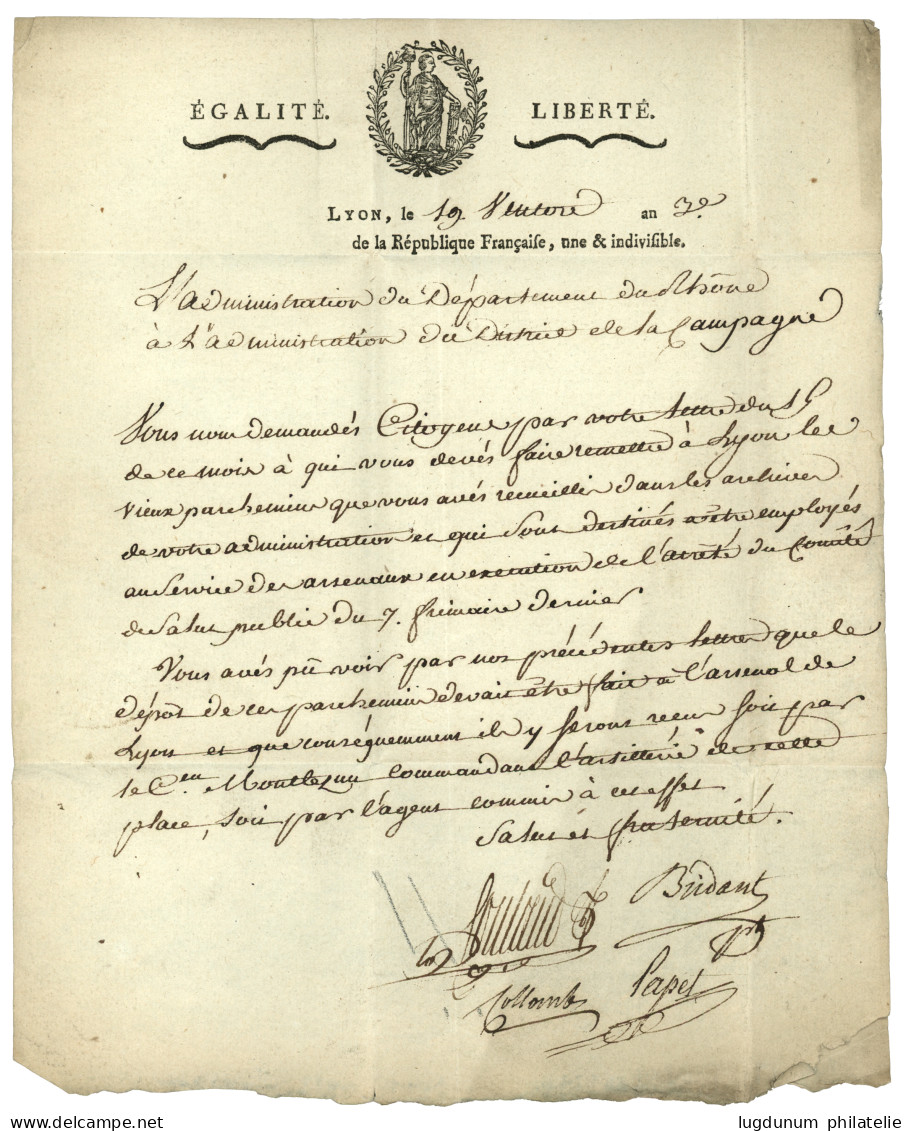 ÉGALITÉ. LIBERTÉ.
LYON, le 19 Ventose an 3e.
de la République Française, une & indivisible.
L'administration du Département du Rhône
à L'administration du District de la Campagne
Vous nous demandés Citoyens par votre lettre du 15
de ce mois à qui vous devés faire remettre à Lyon les
vieux parchemins que vous avés recueillis dans les archives
de votre administration et qui sont destinés a être employés
au Service des arsenaux en execution de l'arrêté du Comité
de Salut public du 7. frimaire dernier
Vous avés pû voir par nos précédentes lettres que le
dépôt de ces parchemins devait être fait à l'arsenal de
Lyon et que conséquemment ils y seront reçus soit par
le C.en Montlezun commandant l'artillerie de cette
place, soit par l'agent commis à cet effet
Salut et fraternité.
Bridant
Collomb Papet
delcampe.net lugdunum philatelie